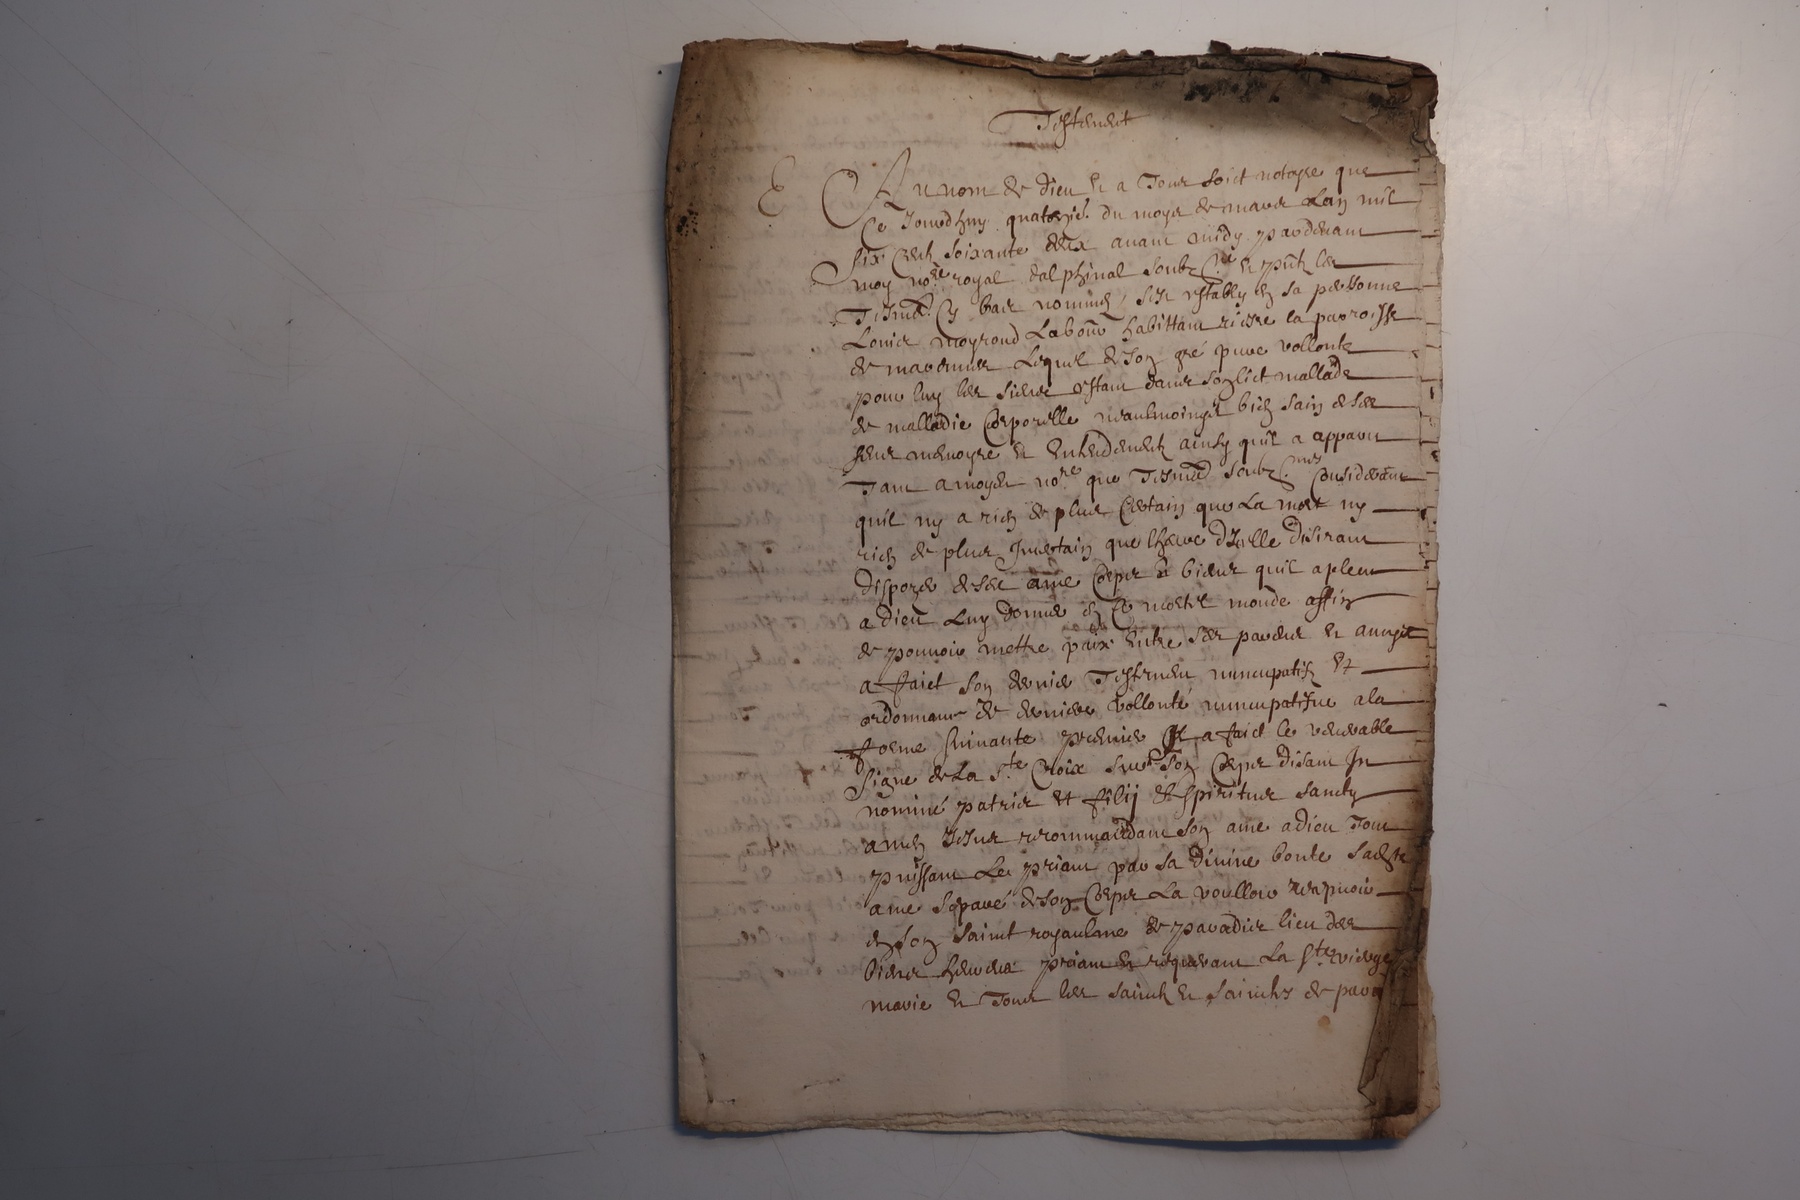 Testament
Au nom de dieu & a Tous soict notoyre que
Ce Jourdhuy quatorzie. du moys de mars Lan mil
Six Cent soixante deux avant midy pardevant
moy nore royal dalphinal soubzne & pntz les
Tesmz Cy bas nommes, sest estably en sa personne
Louis moyroud Labour habittant riere la parroisse
de Lequel de son gré pure vollonté
pour luy les siens estant dans son lict mallade
de malladie Corporelle neaulmoingz bien sain de ses
sens memoyre & Entendement ainsy quil a apparu
Tant a moydt nore que Tesmz soubznes Considerant
quil ny a rien de plus Certain que La mort ny
rien de plus Incertain que lheure dIcelle desirant
disposer de ses ame Corps & biens quil a pleu
a dieu Luy donner en Ce mortel monde affin
de pouvoir mettre paix Entre ses parens & amys
a faict son dernier Testment nuncupatif Et
ordonnance de derniere vollonté nuncupatifve a la
forme suivante premier Il a faict le venerable
signe de La Ste Croix sur son Corps disant In
nominé patris et filij & spiritus sancty
amen Jesus recommandant son ame a dieu Tout
puissant Le priant par sa divine bonté sadite
ame separé de son Corps La voulloir recepvoir
en son saint royaulme de paradis lieu des
biens heureux priant & requerant La Ste vierge
marie & Tous les saintz & saintes de para